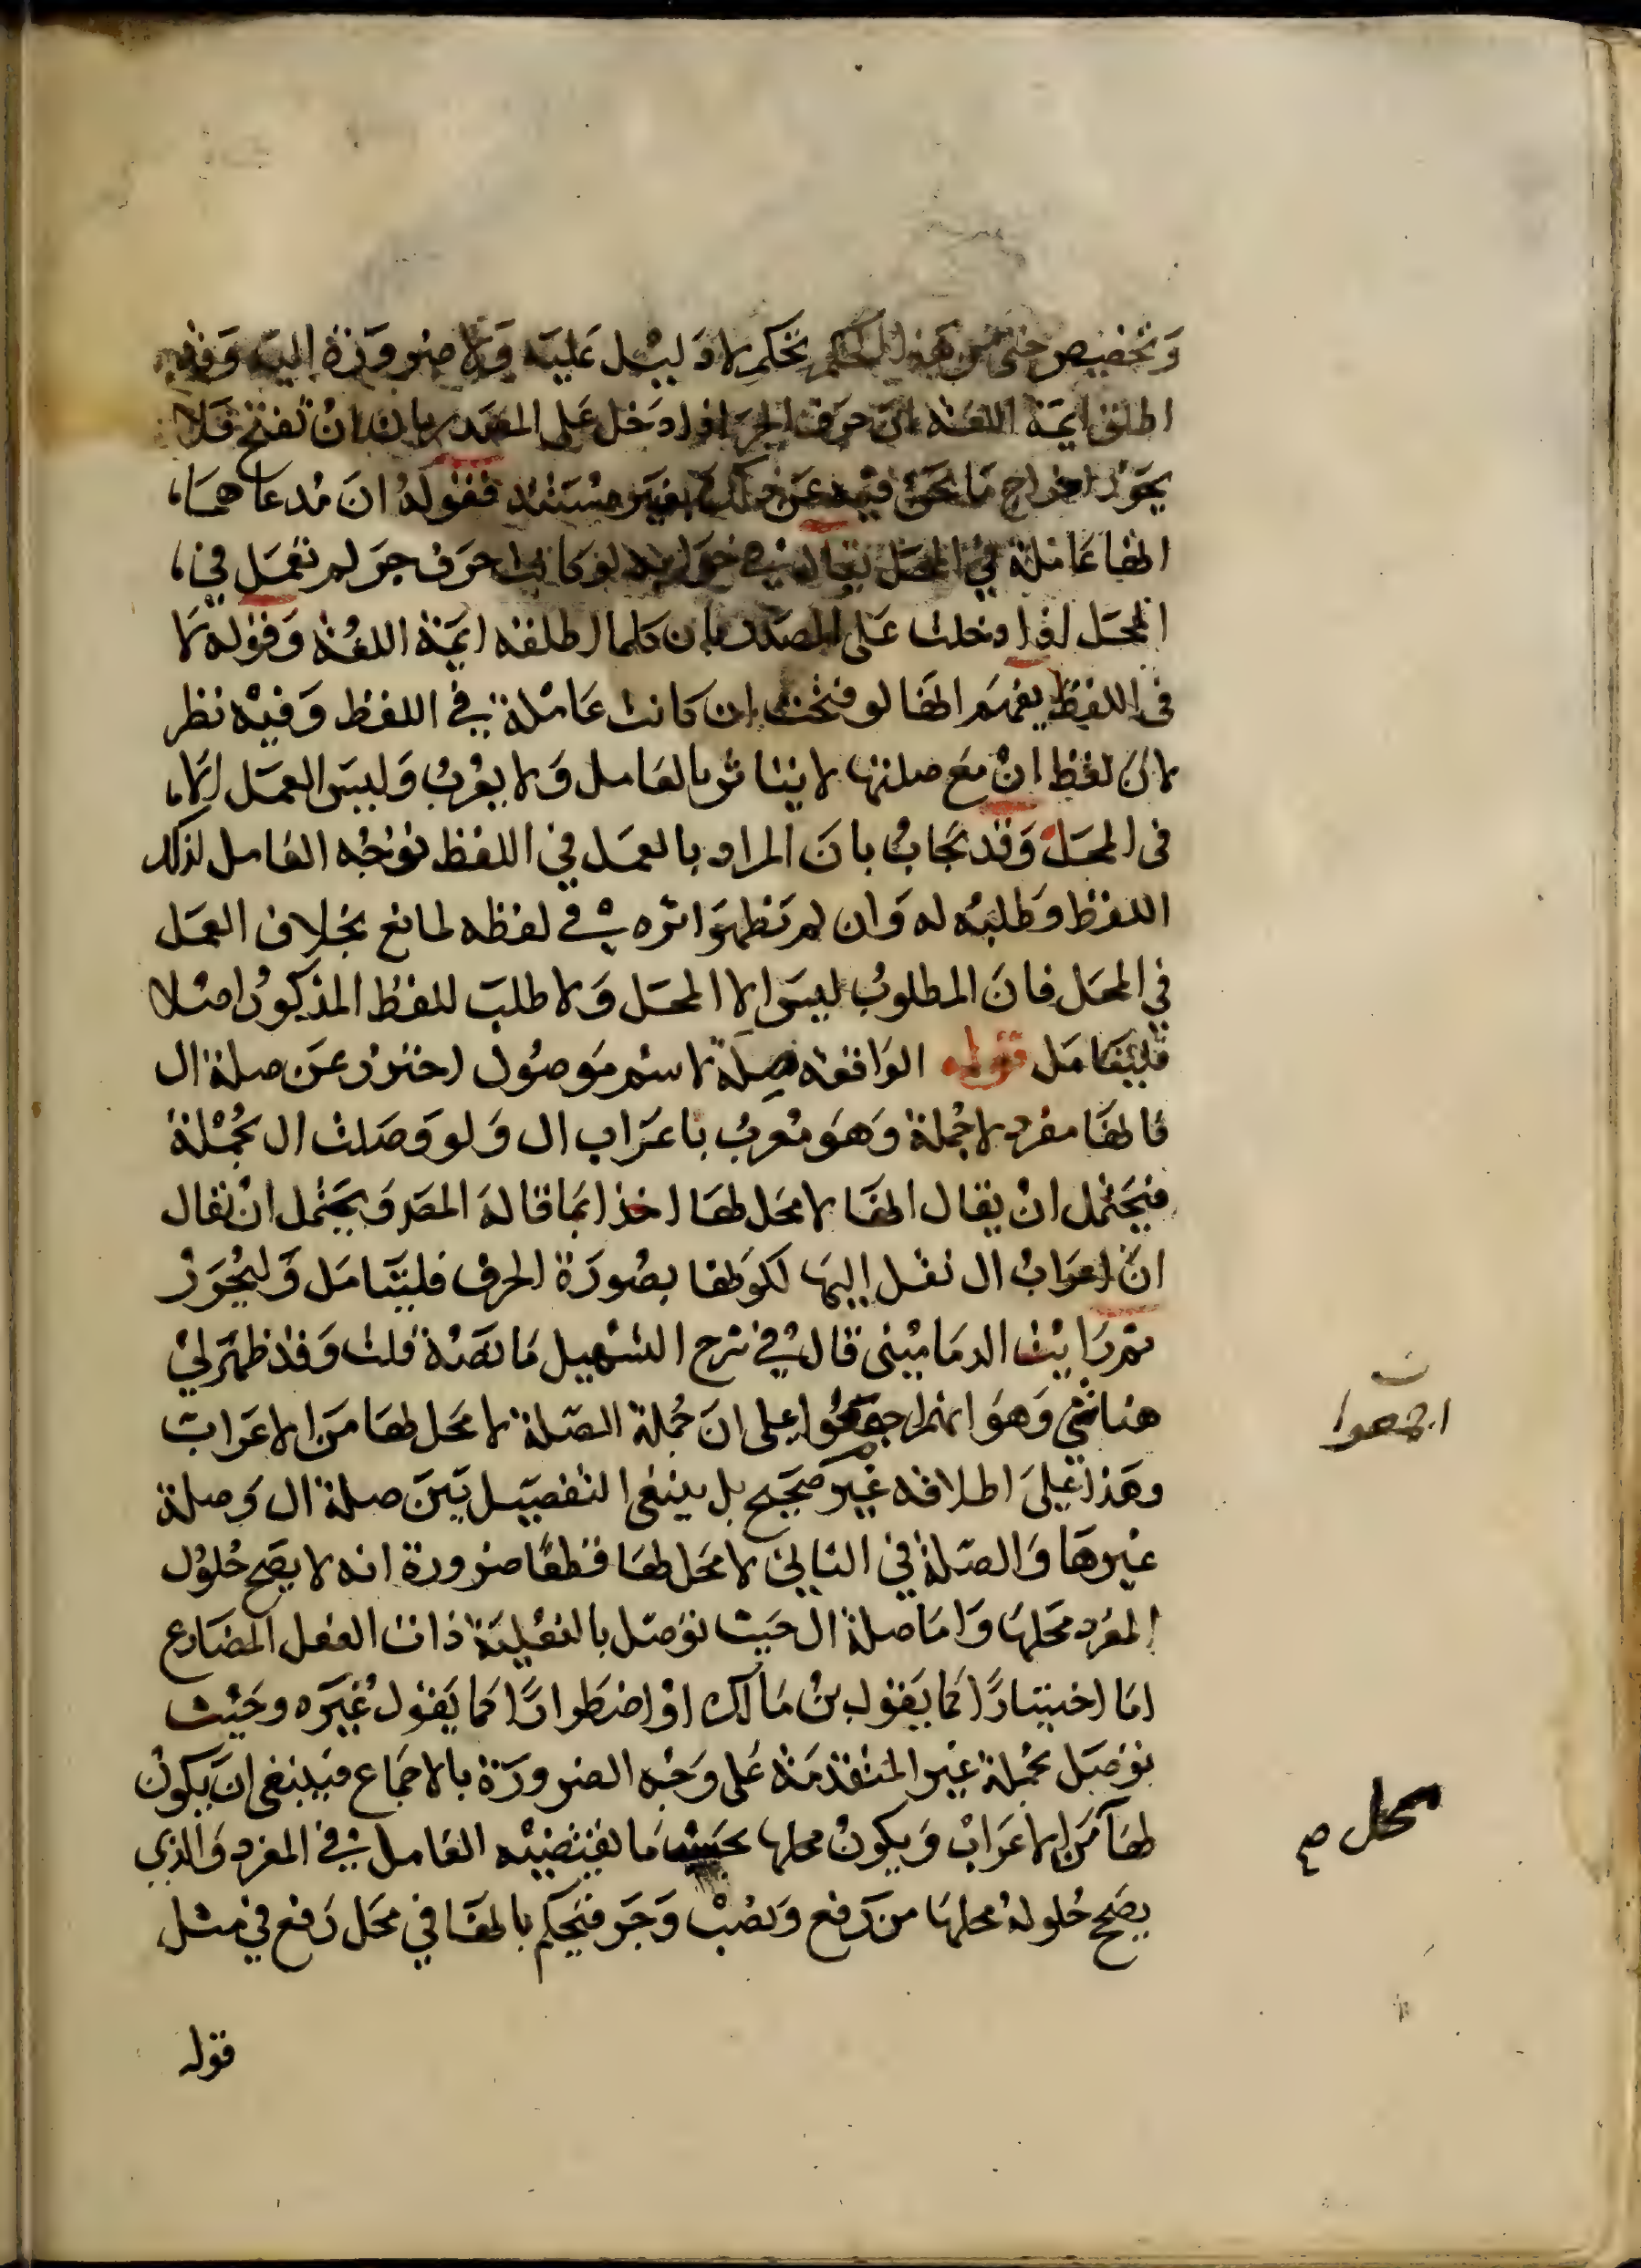 وتخصيص حتى من هذا الحكم تحكم لا دليل عليه ولا ضرورة اليه وقد
اطلق ايمة اللغة ان حرف الجر اذا دخل على المصدر بان ان تفتح فلا
يجوز اخراج ما نحن فيه عن ذلك بغير مستند فقوله ان مدعاهما
انها عاملة في المحل يقال في جوابه لو كانت حرف جر لم تعمل في
المحل اذا دخلت على المصدر بان كما اطلقه ايمة اللغة وقوله لا
في اللفظ يفهم انها لو فتحت ان كانت عاملة في اللفظ وفيه نظر
لان لفظ ان مع صلتها لا يتاثر بالعامل ولا يعرب وليس العمل الا
في المحل وقد يجاب بان المراد بالعمل في اللفظ توجه العامل لذلك
اللفظ وطلبه له وان لم تظهر اثره في لفظه لمانع بخلاف العمل
في المحل فان المطلوب ليس الا المحل ولا طلب للفظ المذكور اصلا
فليتامل قوله الواقعة صلة لاسم موصول احترز عن صلة ال
فانها مفرد لا جملة وهو معرب باعراب ال ولو وصلت ال بجملة
فيحتمل ان يقال انها لا محل لها اخذا بما قاله المص ويحتمل ان يقال
ان اعراب ال نقل اليها لكونها بصورة الحرف فليتامل وليحرر
ثم رايت الدماميني قال في شرح التسهيل ما نصه قلت وقد ظهر لي
هنا شي وهو انهم اجمعوا على ان جملة الصلة لا محل لها من الاعراب
وهذا على اطلاقه غير صحيح بل ينبغي التفصيل بين صلة ال وصلة
غيرها والصلة في الثاني لا محل لها قطعا ضرورة انه لا يصح حلول
المفرد محلها واما صلة ال حيث توصل بالفعلية ذات الفعل المضارع
اما اختيارا كما يقول بن مالك او اضطرارا كما يقول غيره وحيث
توصل بجملة غير المتقدمة على وجه الضرورة بالاجماع فينبغي ان يكون
لها من الاعراب ويكون محلها بحسب ما يقتضيه العامل في المفرد والذي
يصح حلوله محلها من رفع ونصب وجر فيحكم بانها في محل رفع في مثل
قوله
ن
اجمعوا
محل صح